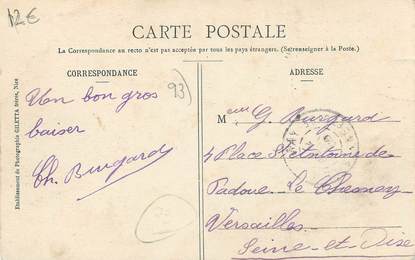 12€
CARTE POSTALE
La Correspondance au recto n'est pas acceptée par tous les pays étrangers. (Se renseigner à la Poste.)
CORRESPONDANCE
ADRESSE
Etablissement de Photographie GILETTA frères, Nice
93)
Un bon gros
baiser
Ch. Burgard
Meur G. Burgard
4 Place St Antoine de
Padoue Le Chesnay
Versailles
Seine-et-Oise